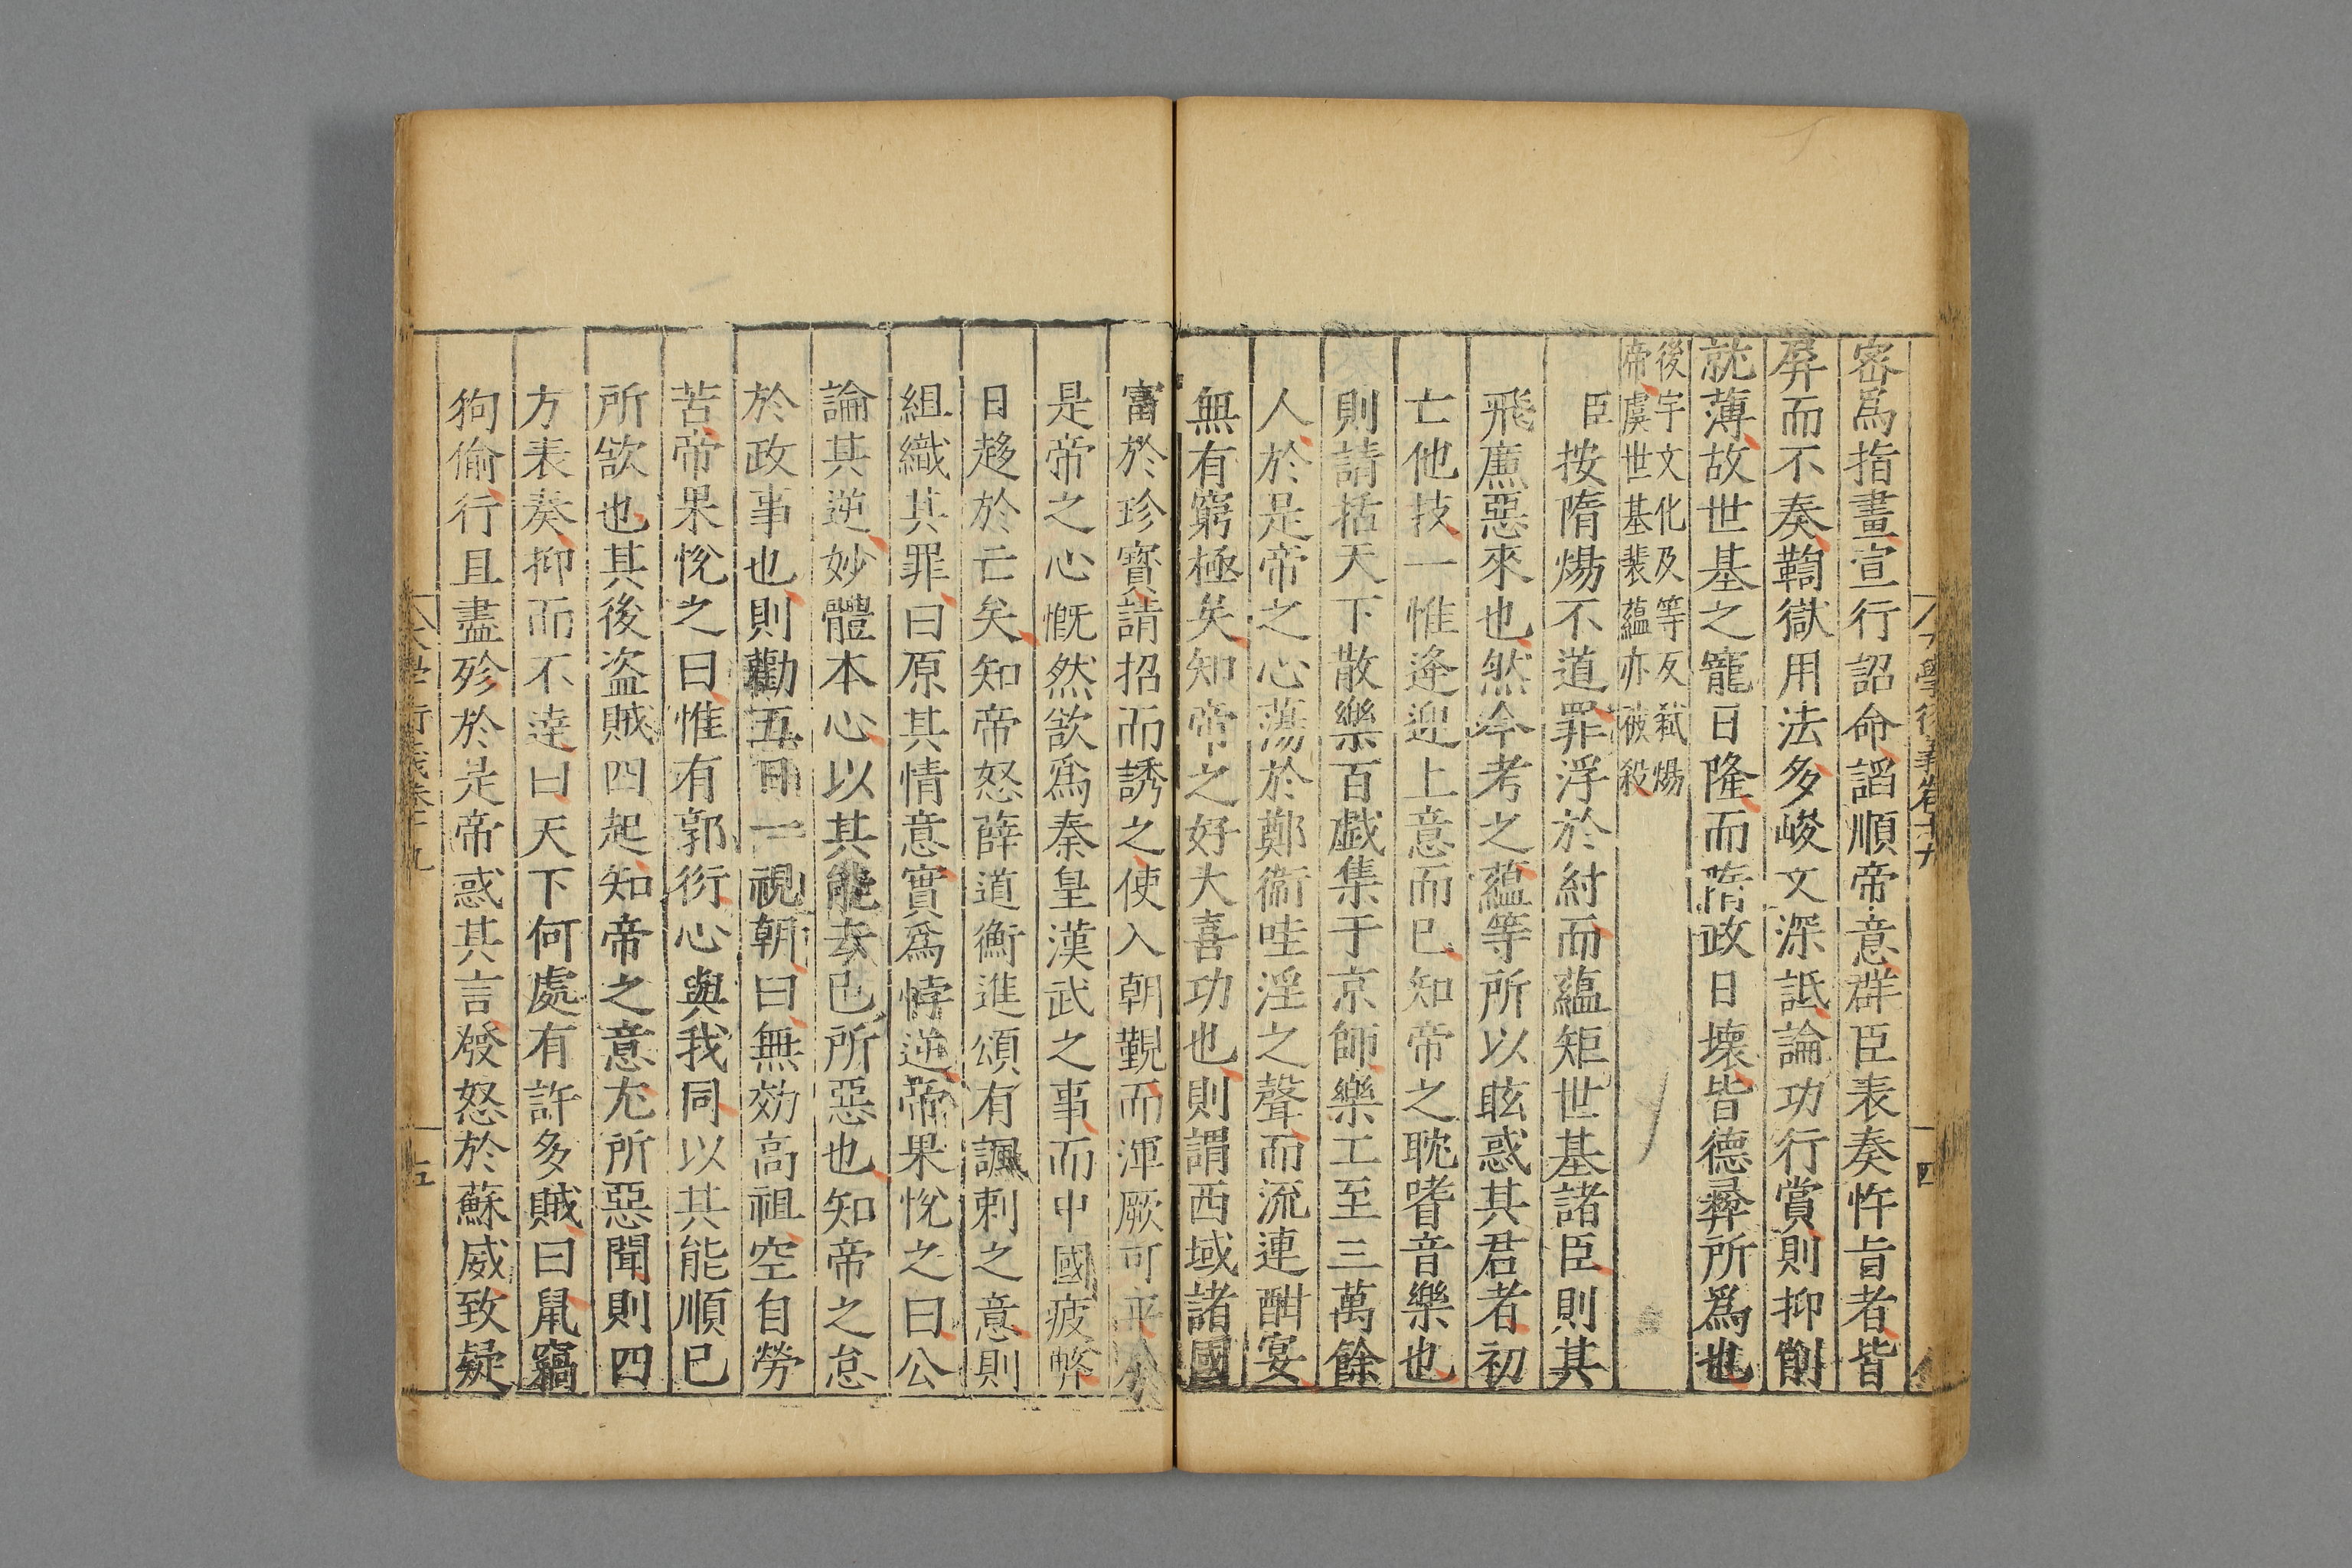 密爲指畫宣行詔命謟順帝意群臣表奏忤旨者皆
屏而不奏鞫獄用法多峻文深詆論功行賞則抑削
就薄故世基之寵日隆而隋政日壞皆德彝所爲也
後宇文化及等反弑煬
帝虞世基裴蘊亦被殺
臣按隋煬不道罪浮於紂而蘊矩世基諸臣則其
飛廉惡來也然今考之蘊等所以眩惑其君者初
亡他技一惟逢迎上意而已知帝之耽嗜音樂也
則請括天下散樂百戯集于京師樂工至三萬餘
人於是帝之心蕩於鄭衞哇淫之聲而流連酣宴
無有窮極矣知帝之好大喜功也則謂西域諸國
富於珍寶請招而誘之使入朝覲而渾厥可平於
是帝之心慨然欲爲秦皇漢武之事而中國疲弊
日趍於亡矣知帝怒薛道衡進頌有諷刺之意則
組織其罪曰原其情意實爲悖逆帝果悅之曰公
論其逆妙體本心以其能去己所惡也知帝之怠
於政事也則勸五日一視朝曰無効高祖空自勞
苦帝果悅之曰惟有郭衍心與我同以其能順已
所欲也其後盗賊四起知帝之意尢所惡聞則四
方表奏抑而不達曰天下何處有許多賊曰鼠竊
狗偷行且盡殄於是帝惑其言發怒於蘇威致疑
大學衍義卷十九
五
四